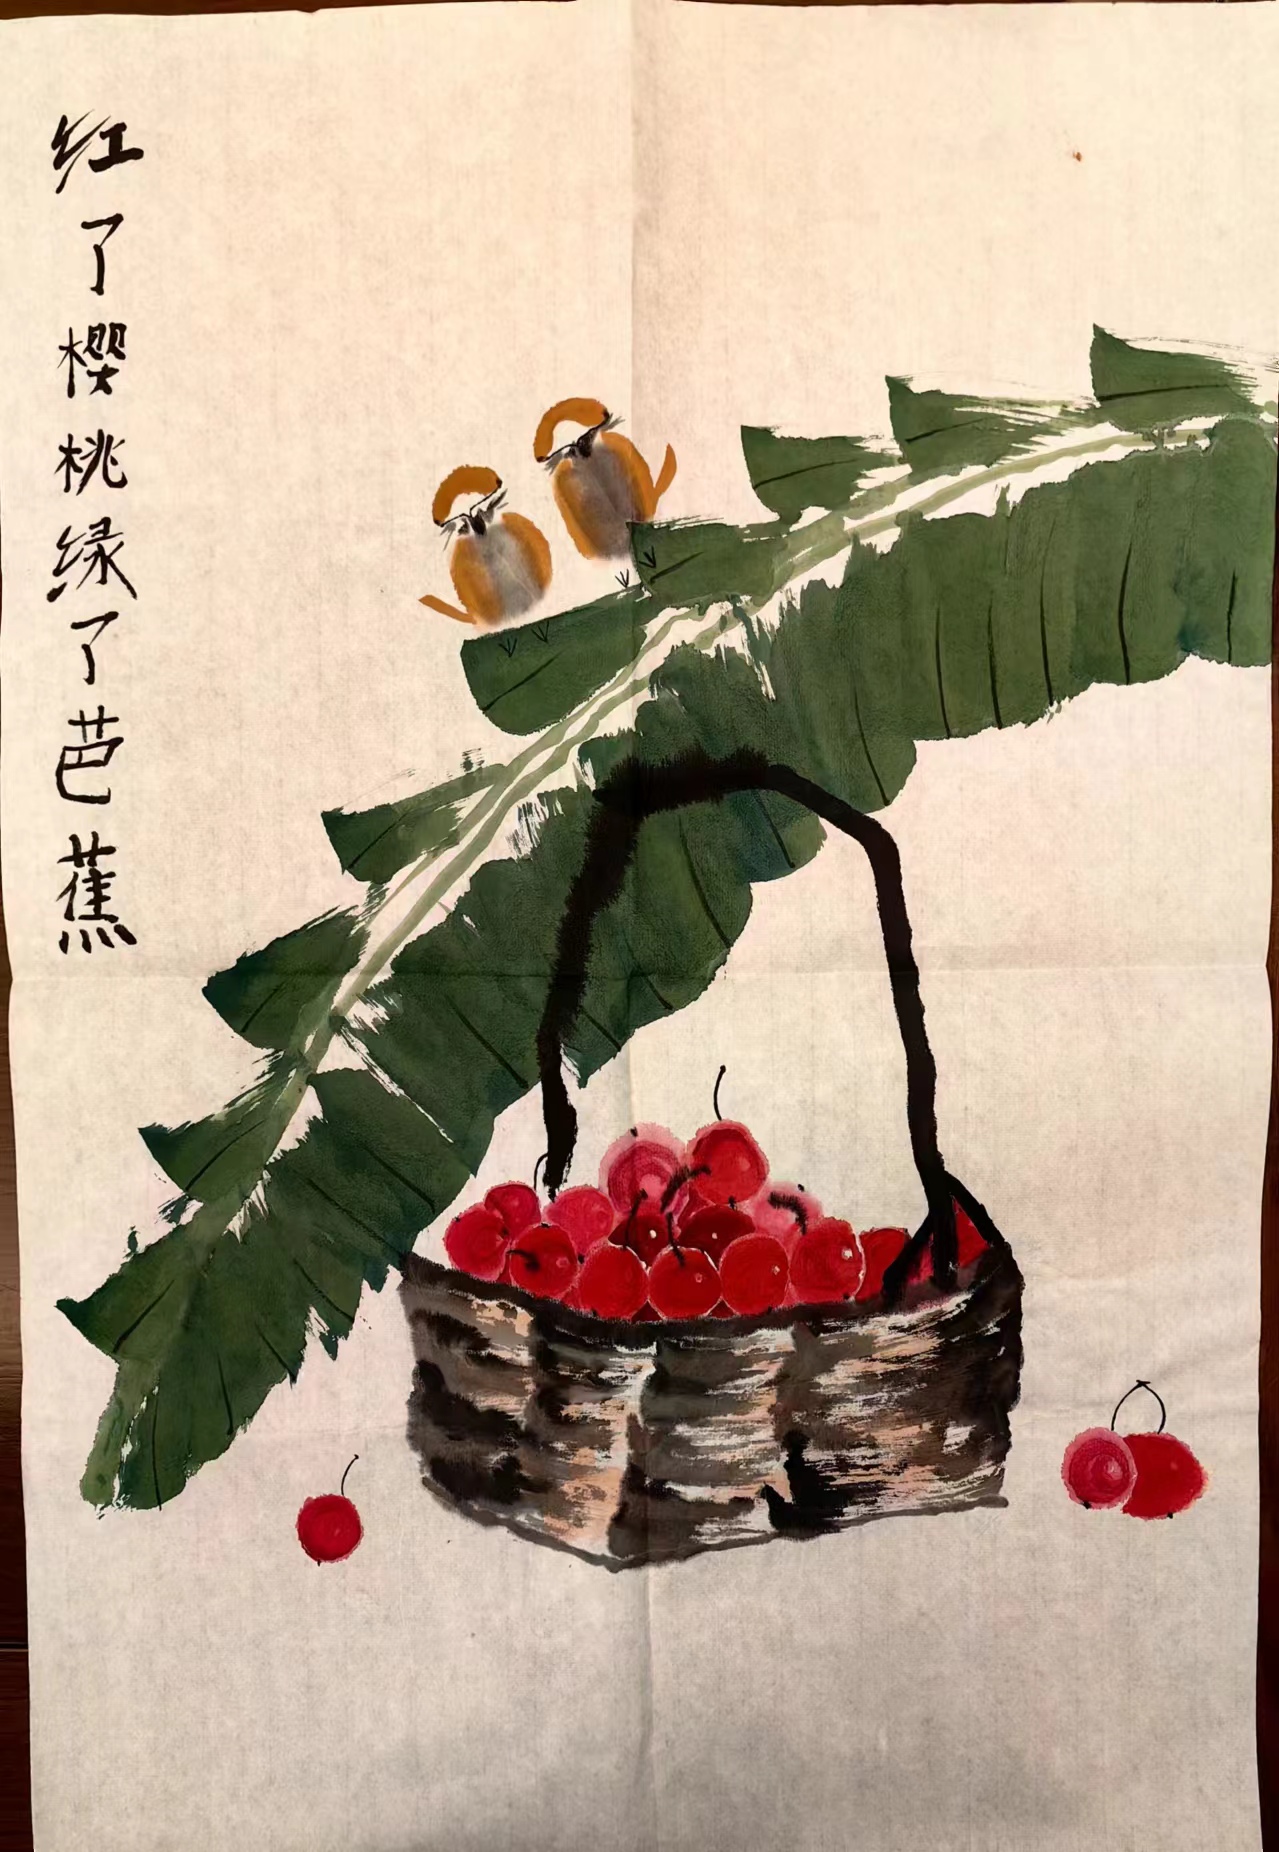 红了樱桃绿了芭蕉